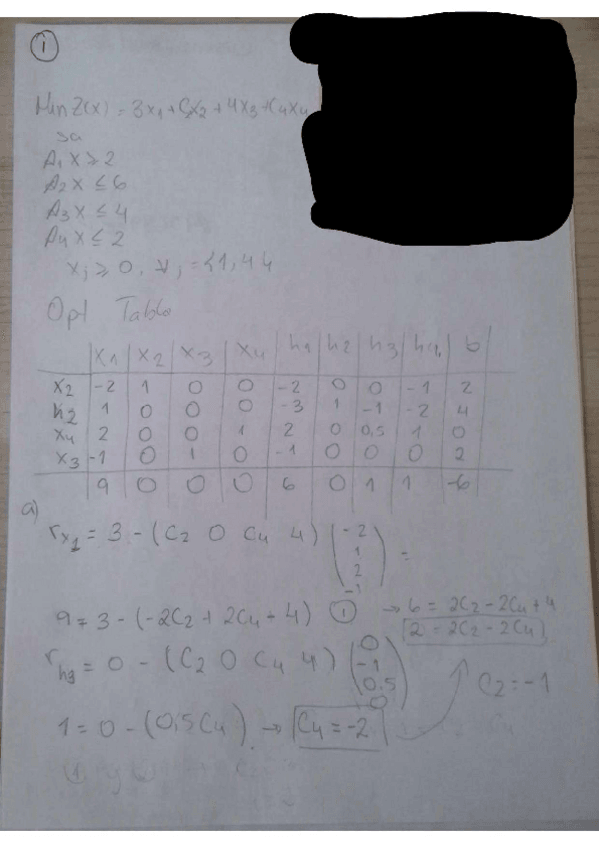 1
Min Z(x) = 3x1 + C2x2 + 4x3 + C4x4
sa
A1 x ≥ 2
A2 x ≤ 6
A3 x ≤ 4
A4 x ≤ 2
xj ≥ 0, ∀j = {1,4}
Opt Tablo
x1 x2 x3 x4 h1 h2 h3 h4 b
x2 -2 1 0 0 -2 0 0 -1 2
h2 1 0 0 0 -3 1 -1 -2 4
x4 2 0 0 1 2 0 0,5 1 0
x3 -1 0 1 0 -1 0 0 0 2
9 0 0 0 6 0 1 1 -6
a)
rx1 = 3 - (C2 0 C4 4) (-2 1 2 -1) =
9 = 3 - (-2C2 + 2C4 + 4) 1 → 6 = 2C2 - 2C4 + 4
2 = 2C2 - 2C4
rh3 = 0 - (C2 0 C4 4) (0 -1 0,5 0)
C2 = -1
1 = 0 - (0,5C4) → C4 = -2